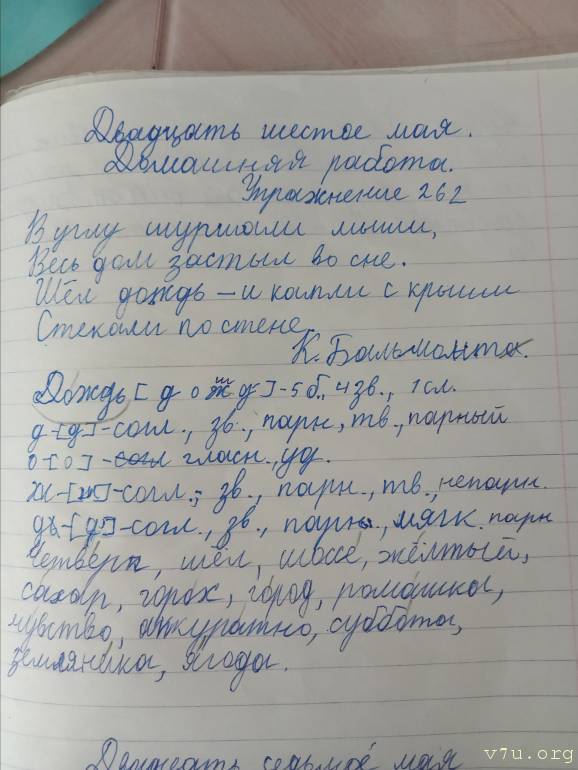 Двадцать шестое мая.
Домашняя работа.
Упражнение 262
В углу шуршали мыши,
Весь дом застыл во сне.
Шёл дождь – и капли с крыши
Стекали по стене.
К. Бальмонт
Дождь [д о ш д'] - 5 б., 4 зв., 1 сл.
д - [д] - согл., зв., парн., тв., парный
о - [о] - гласн., уд.
ж - [ш] - согл., зв., парн., тв., непарн.
дь - [д'] - согл., зв., парн., мягк. парн
Четверг, шёл, шоссе, жёлтый,
сахар, горох, город, ромашка,
чувство, аккуратно, суббота,
земляника, ягода.
Двадцать седьмое мая
v7u.org